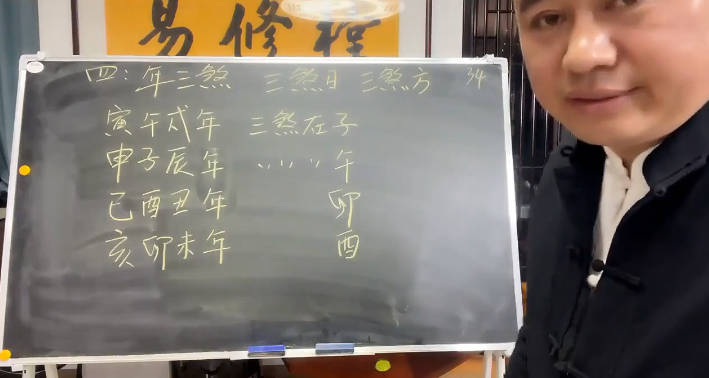 易修程
四：年三煞 三煞日 三煞方 34
寅午戌年 三煞在子
申子辰年 〃〃〃午
巳酉丑年 卯
亥卯未年 酉